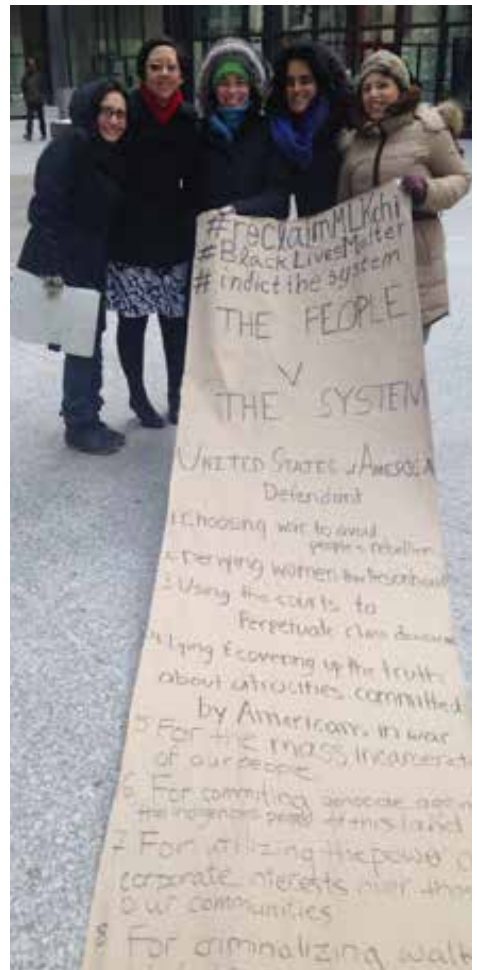 #reclaimMLKchi
#BlackLivesMatter
#indict the system
THE PEOPLE
V
THE SYSTEM
UNITED STATES of AMERICA
Defendant
1. Choosing war to avoid
people's rebellion
2. Denying women
3. Using the courts to
Perpetuate class
4. Lying & covering up the truth
about atrocities committed
by Americans in war
5 For the mass incarcerat
of our people
6 For commiting genocide again
the indigenous people of this land
7 For utilizing the power o
corporate interests over
our communities
8 For criminalizing walk